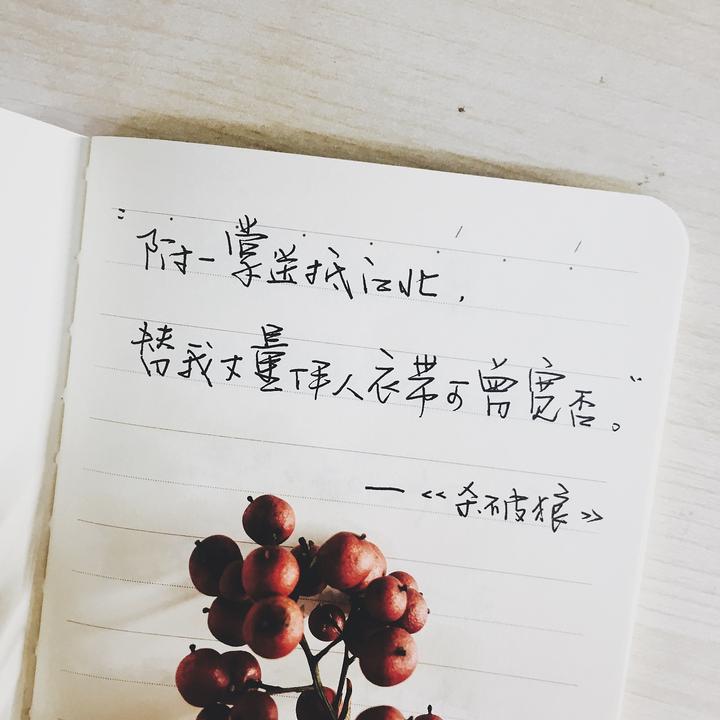 “附一掌送抵江北，
替我丈量伊人衣带可曾宽否。”
—《杀破狼》